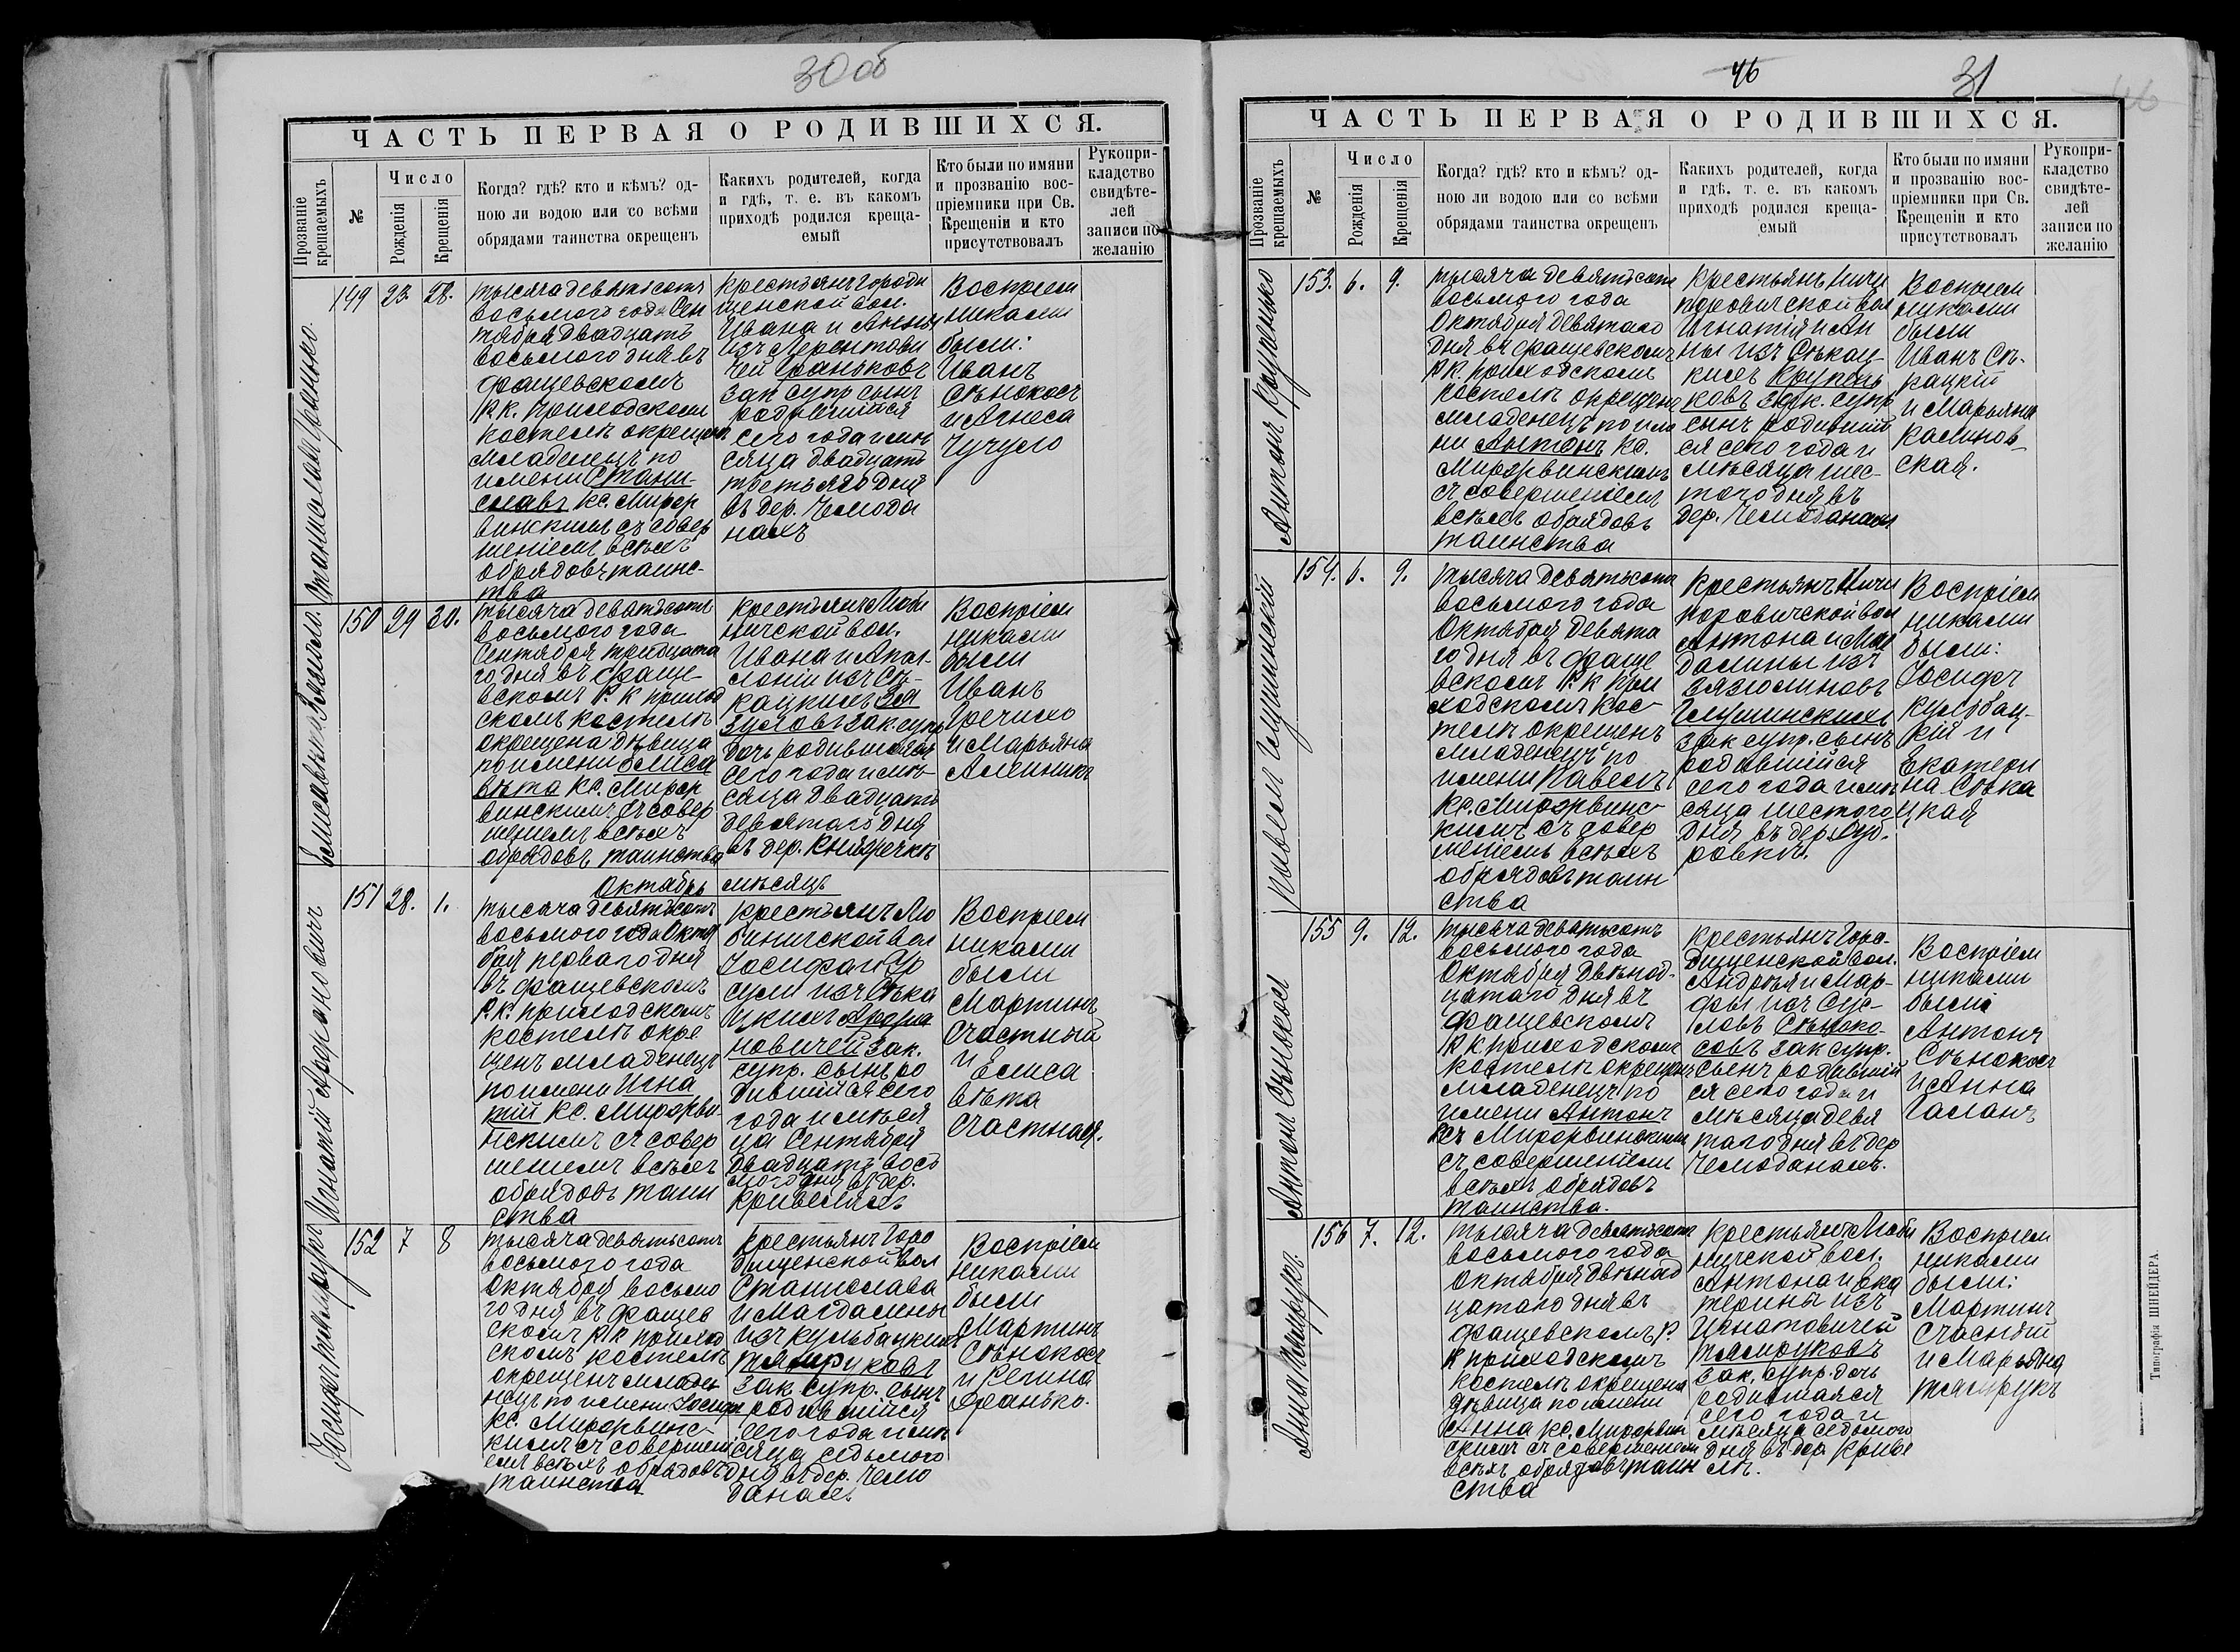 30об
ЧАСТЬ ПЕРВАЯ О РОДИВШИХСЯ.
Прозваніе крещаемыхъ
№
Число
Рожденія
Крещенія
Когда? гдѣ? кто и кѣмъ? од-
ною ли водою или со всѣми
обрядами таинства окрещенъ
Какихъ родителей, когда
и гдѣ, т. е. въ какомъ
приходѣ родился креща-
емый
Кто были по имяни
и прозванію вос-
пріемники при Св.
Крещеніи и кто
присутствовалъ
Рукопри-
кладство
свидѣте-
лей
записи по
желанію
Станиславъ Гранько.
149 23. 28.
тысяча девятьсотъ
восьмого года Сен
тября двадцать
восьмого дня въ
Фащевскомъ
Р. К. приходскомъ
костелѣ окрещенъ
младенецъ по
имени Стани-
славъ кс. Мирор
винскимъ съ совер
шеніемъ всѣхъ
обрядовъ таинс-
тва
крестьянъ Городи
щенской вол.
Ивана и Анны
изъ
Граньковъ
зак супр сынъ
родившійся
сего года и мѣ
сяца двадцать
третьяго дня
въ дер. Чемода
нахъ
Воспріем
никами
были:
Иванъ
Сѣнокосъ
и Агнеса
Чучуло
150 29 30.
тысяча девятьсотъ
восьмого года
Сентября тридцата
го дня въ Фаще-
вскомъ Р. К приход
скомъ костелѣ
окрещена дѣвица
по имени Елиса
вѣта кс. Мирор
винскимъ съ совер
шеніемъ всѣхъ
обрядовъ таинства
крестьянъ Люби
ничской вол.
Ивана и Апол-
лоніи изъ Сѣ-
кацкихъ Зя
зулловъ зак. супр
дочь родившаяся
сего года и мѣ-
сяца двадцать
девятаго дня
въ дер.
Воспріем
никами
были
Иванъ
и Марьяна
Октябрь мѣсяцъ
Игнатій Арфановичъ
151 28. 1.
тысяча девятьсотъ
восьмого года Октя
бря перваго дня
въ Фащевскомъ
Р. К. приходскомъ
костелѣ окре
щенъ младенецъ
по имени Игна
тій кс. Мирорви-
нскимъ съ совер
шеніемъ всѣхъ
обрядовъ таин
ства
крестьянъ Лю
биничской вол
Іосифа и Ур
сули изъ Сѣка
цкихъ Арфа
новичей зак.
супр. сынъ ро
дившійся сего
года и мѣся
ца Сентября
двадцать вось
мого дня въ дер.
Воспріем
никами
были
Мартинъ
Счастный
и Елиса
вѣта
Счастная.
152 7 8
тысяча девятьсотъ
восьмого года
Октября восьмо
го дня въ Фащев
скомъ Р К приход
скомъ костелѣ
окрещенъ младе
нецъ по имени Іосифъ
кс. Мирорвинс-
кимъ съ совершені
емъ всѣхъ обрядовъ
таинства
крестьянъ Горо
дищенской вол
Станислава
и Магдалины
изъ Кульбацкихъ
Тямруковъ
зак супр. сынъ
родившійся
сего года и мѣ
сяца седьмого
дня въ дер. Чемо
данахъ.
Воспріем
никами
были
Мартинъ
Сѣнокосъ
и Селина
Франько.
46 31
ЧАСТЬ ПЕРВАЯ О РОДИВШИХСЯ.
Прозваніе крещаемыхъ
№
Число
Рожденія
Крещенія
Когда? гдѣ? кто и кѣмъ? од-
ною ли водою или со всѣми
обрядами таинства окрещенъ
Какихъ родителей, когда
и гдѣ. т. е. въ какомъ
приходѣ родился креща-
емый
Кто были по имяни
и прозванію вос-
пріемники при Св.
Крещеніи и кто
присутствовалъ
Рукопри-
кладство
свидѣте-
лей
записи по
желанію
Антонъ Крупенько
153. 6. 9.
тысяча девятьсотъ
восьмого года
Октября девятаго
дня въ Фащевскомъ
Р К. приходскомъ
костелѣ окрещенъ
младенецъ по име
ни Антонъ кс.
Мирорвинскимъ
съ совершеніемъ
всѣхъ обрядовъ
таинства
крестьянъ Ничи
поровичской вол
Игнатія и Ан
ны изъ Сѣкац-
кихъ Крупень
ковъ зак. супр
сынъ родивший
ся сего года и
мѣсяца шес-
того дня въ
дер. Чемоданахъ
Воспріем
никами
были
Иванъ Сѣ-
кацкій
и Марьяна
Калинов-
ская.
Павелъ Глушинскій
154. 6. 9.
тысяча девятьсотъ
восьмого года
Октября девята
го дня въ Фаще
вскомъ Р. К при
ходскомъ кос-
телѣ окрещенъ
младенецъ по
имени Павелъ
кс. Мирорвинс-
кимъ съ совер
шеніемъ всѣхъ
обрядовъ таин
ства
крестьянъ Ничи
поровичской вол
Антона и Маг
далины изъ
Зязюлиновъ
Глушинскихъ
зак супр. сынъ
родившійся
сего года и мѣ
сяца шестого
дня въ дер.
Воспріем
никами
были:
Іосифъ
Кульбац-
кій и
Екатери
на Сѣка
цкая
Антонъ Сѣнокосъ
155 9. 12.
тысяча девятьсотъ
восьмого года
Октября двѣнад-
цатаго дня въ
Фащевскомъ
Р К приходскомъ
костелѣ окрещенъ
младенецъ по
имени Антонъ
кс. Мирорвинскимъ
съ совершеніемъ
всѣхъ обрядовъ
таинства.
крестьянъ Горо-
дищенской вол.
Андрея и Мар-
фы изъ Сус-
ловъ Сѣноко-
совъ зак супр.
сынъ родившій
ся сего года и
мѣсяца девя
таго дня въ дер
Чемоданахъ.
Воспріем
никами
были
Антонъ
Сѣнокосъ
и Анна
Галанъ
Анна Тямрукъ.
156 7. 12.
тысяча девятьсотъ
восьмого года
Октября двѣнад
цатаго дня въ
Фащевскомъ Р.
К приходскомъ
костелѣ окрещена
дѣвица по имени
Анна кс. Мирорвин
скимъ съ совершеніемъ
всѣхъ обрядовъ таин
ства
крестьянъ Люби
ничской вол.
Антона и Ека
терины изъ
Игнатовичей
Тямруковъ
зак. супр. дочь
родившаяся
сего года и
мѣсяца седьмого
дня въ дер Криве
лѣ.
Воспріем
никами
были:
Мартинъ
Счасный
и Марьяна
Тямрукъ
Типографія ШНЕЙДЕРА